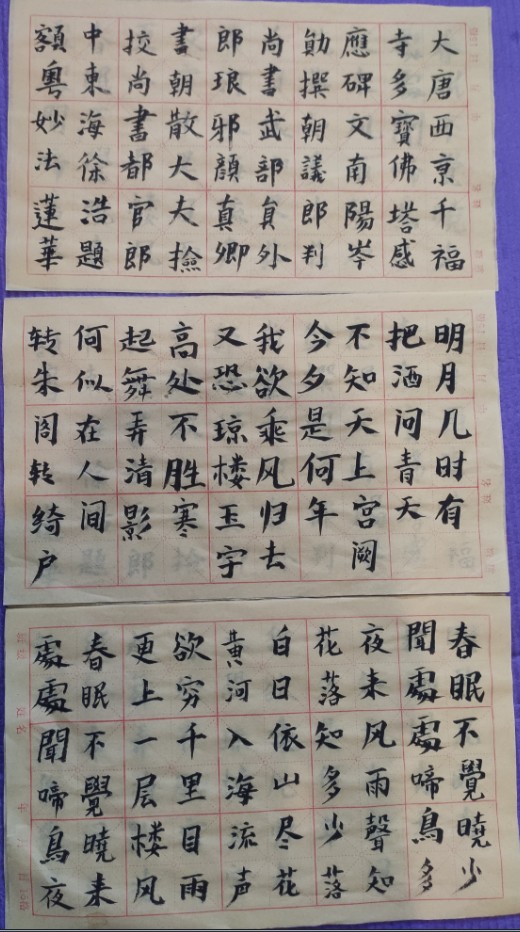 大唐西亰千福
寺多寶佛塔感
應碑文南陽岑
勛撰朝議郎判
尚書武部員外
郎琅邪顏真卿
書朝散大夫撿
挍尚書都官郎
中東海徐浩題
額粤妙法蓮華
明月几时有
把酒问青天
不知天上宫阙
今夕是何年
我欲乘风归去
又恐琼楼玉宇
高处不胜寒
起舞弄清影
何似在人间
转朱阁转绮户
春眠不覺曉少
聞處處啼鳥多
夜来风雨聲知
花落知多少落
白日依山尽花
黄河入海流声
欲穷千里目雨
更上一层楼风
春眠不覺曉来
處處聞啼鳥夜